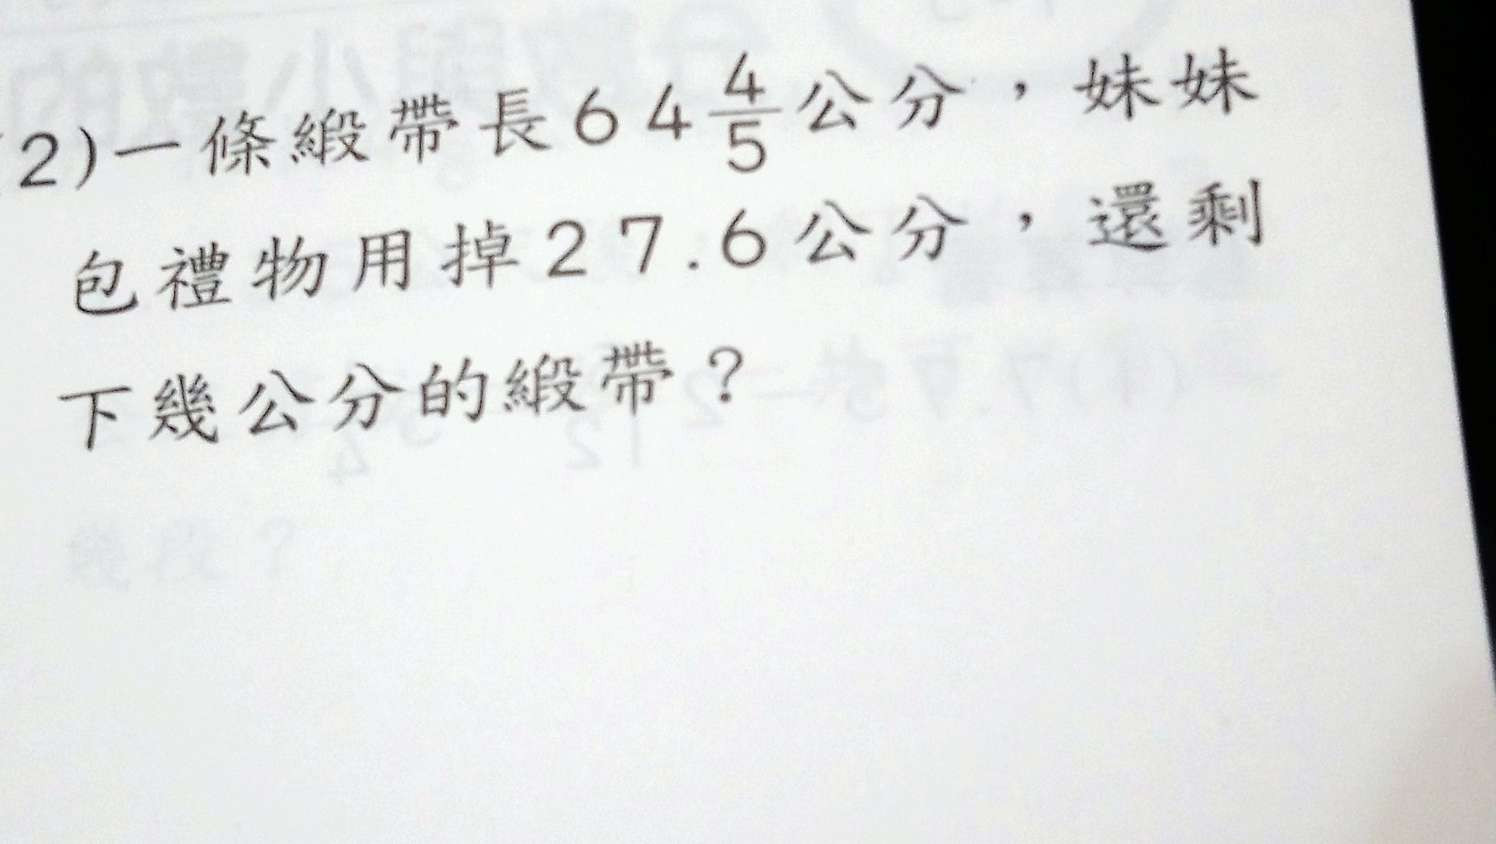 (2)一條緞帶長64 4/5公分，妹妹
包禮物用掉27.6公分，還剩
下幾公分的緞帶？